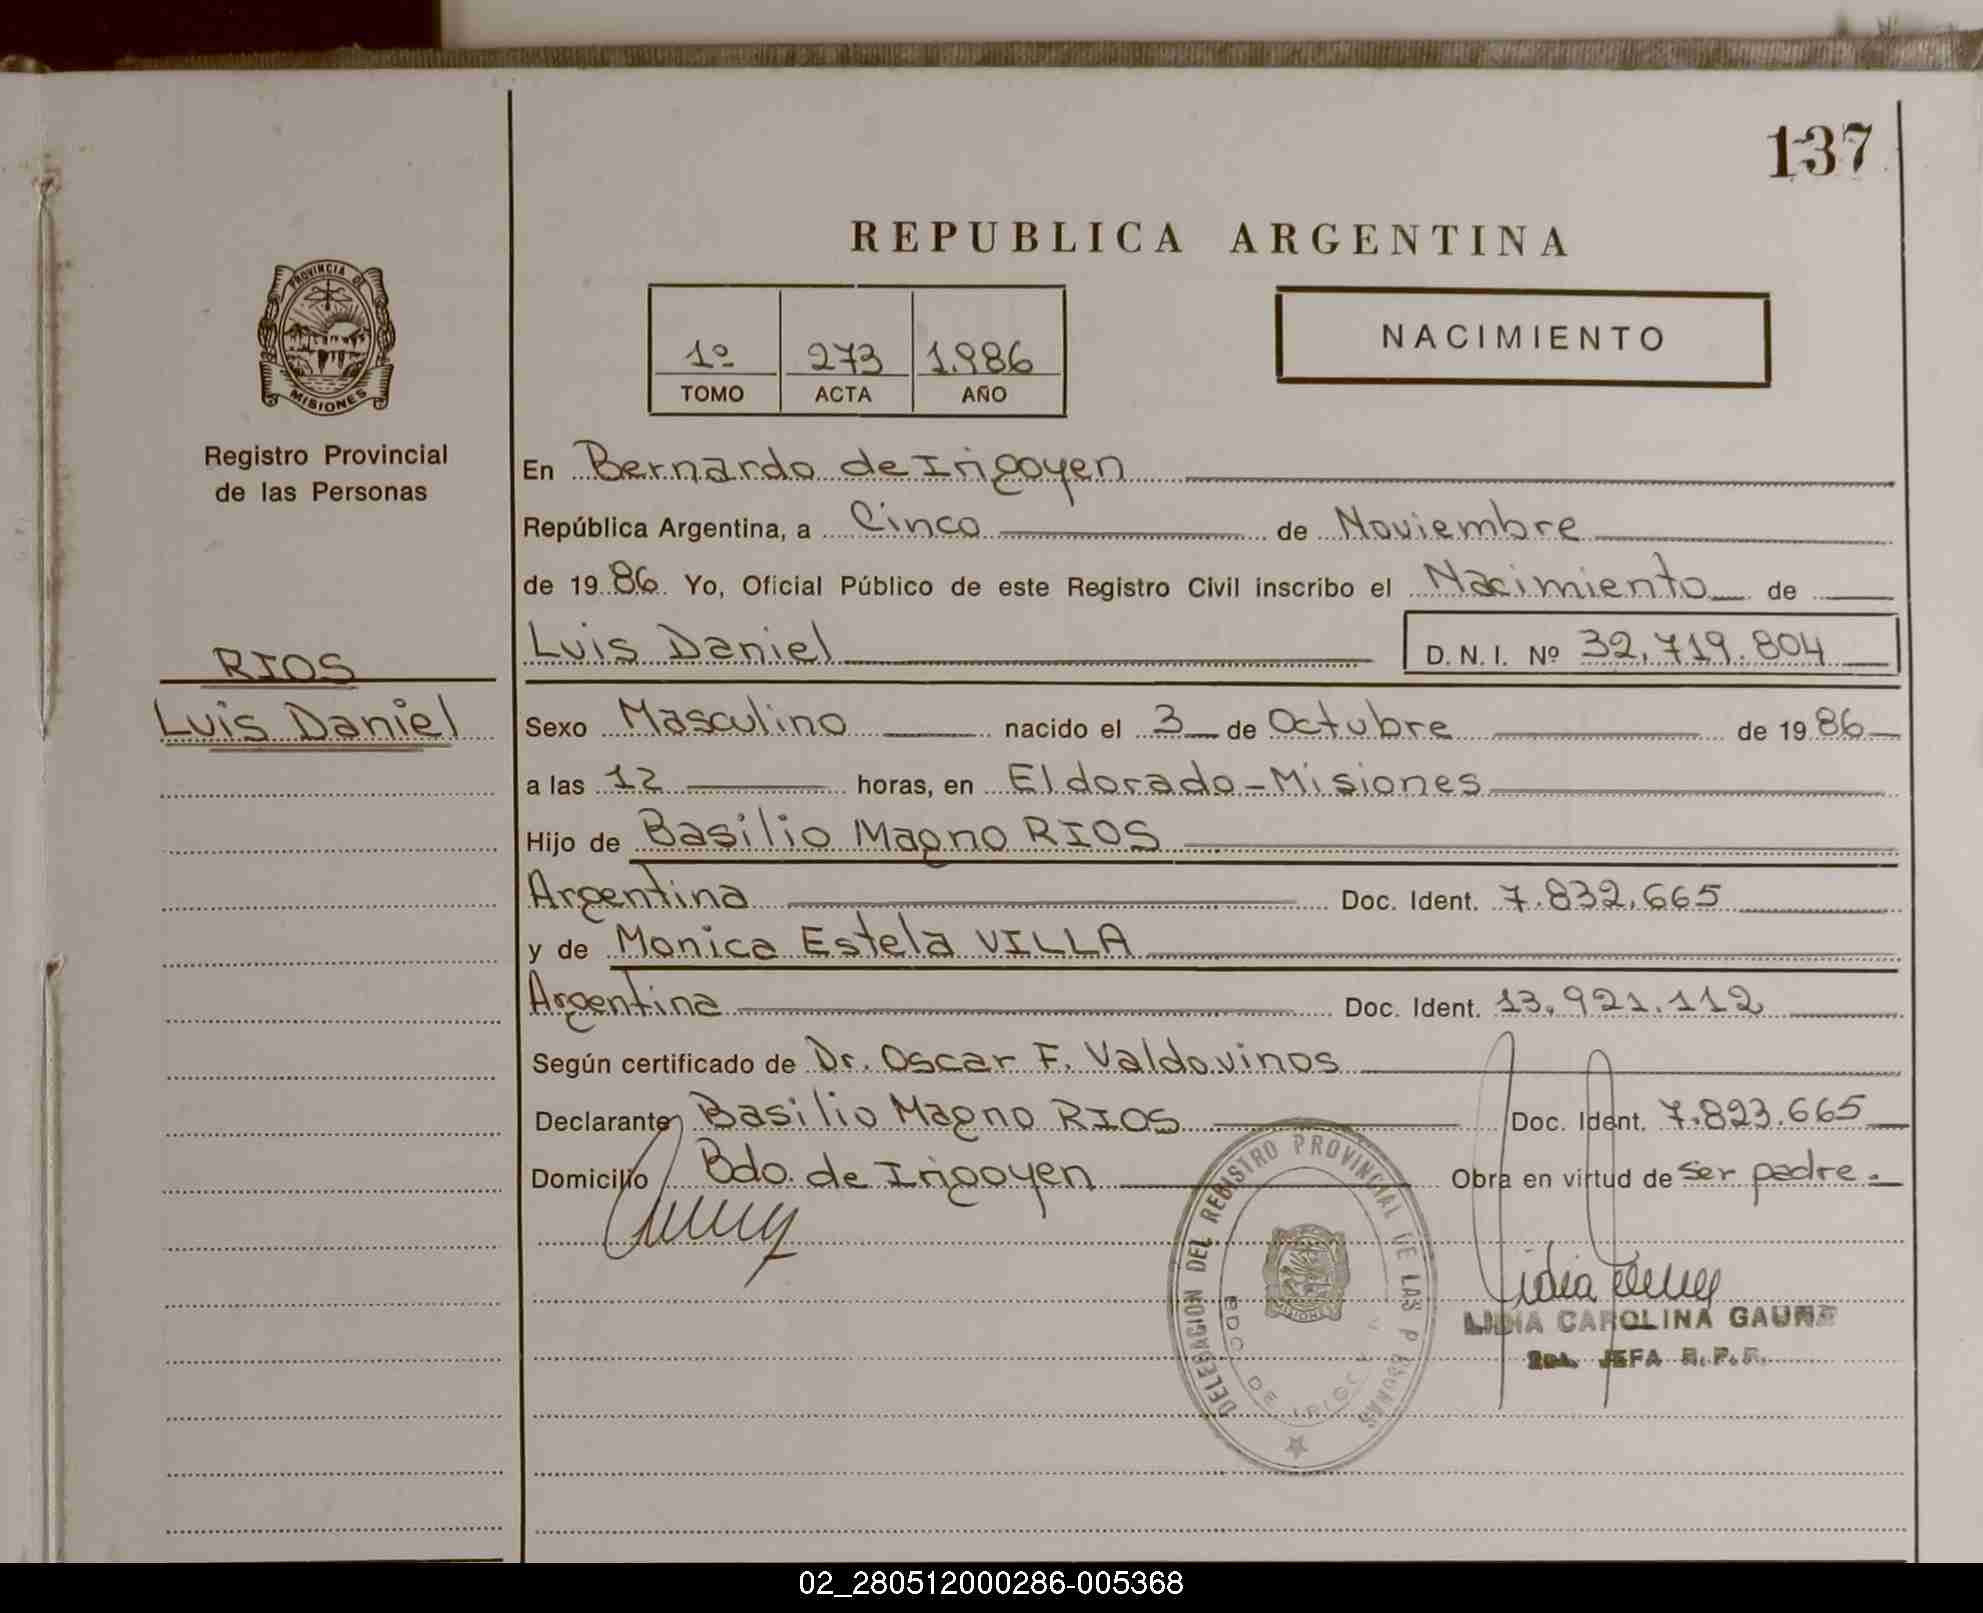 137
REPUBLICA ARGENTINA
PROVINCIA DE
MISIONES
1º 273 1.986
TOMO ACTA AÑO
NACIMIENTO
Registro Provincial
de las Personas
En Bernardo de Irigoyen
República Argentina, a Cinco de Noviembre
de 1986 Yo, Oficial Público de este Registro Civil inscribo el Nacimiento de
Luis Daniel D. N. I. Nº 32.719.804
RIOS
Luis Daniel
Sexo Masculino nacido el 3 de Octubre de 1986
a las 12 horas, en Eldorado-Misiones
Hijo de Basilio Magno RIOS
Argentina Doc. Ident. 7.832.665
y de Monica Estela VILLA
Argentina Doc. Ident. 13.921.112
Según certificado de Dr. Oscar F. Valdovinos
Declarante Basilio Magno RIOS Doc. Ident. 7.823.665
Domicilio Bdo. de Irigoyen Obra en virtud de ser padre.
DELEGACION DEL REGISTRO PROVINCIAL DE LAS PERSONAS
BDO. DE
MISIONES
LIDIA CAROLINA GAUNA
JEFA R.P.P.
02_280512000286-005368